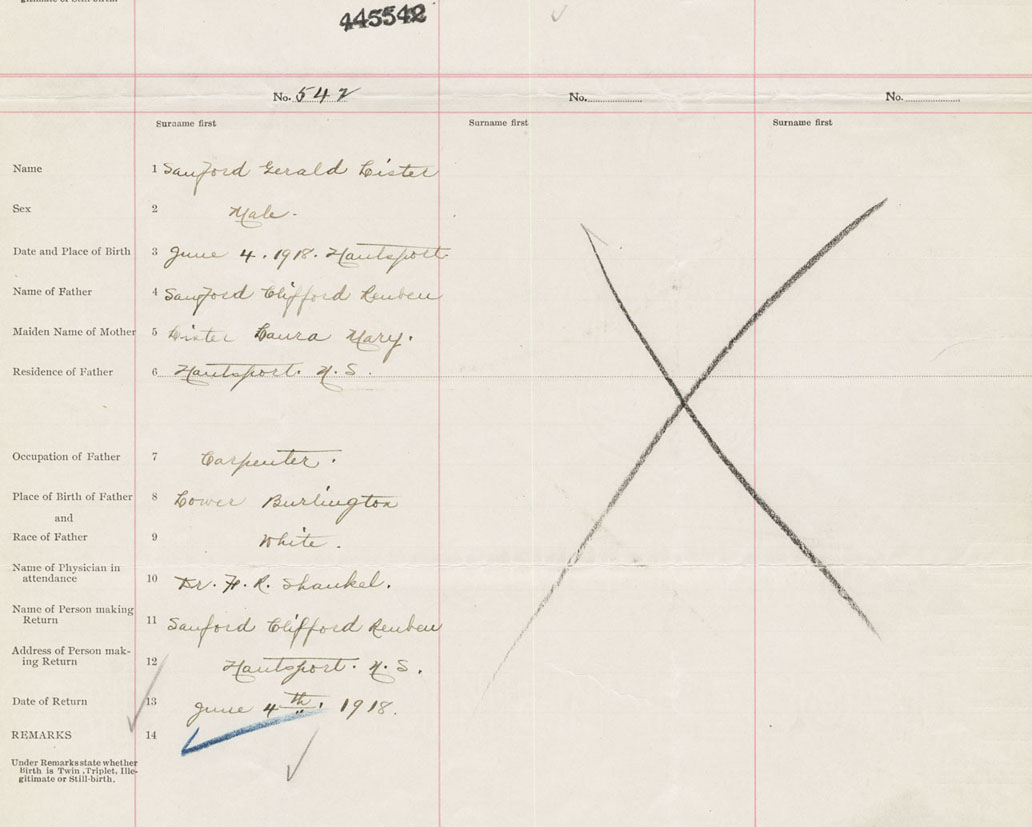 gitimate or Still-birth.
445542
No. 542
No.
No.
Surname first
Surname first
Surname first
Name 1 Sanford Gerald Lister
Sex 2 Male.
Date and Place of Birth 3 June 4. 1918. Hantsport
Name of Father 4 Sanford Clifford Reuben
Maiden Name of Mother 5 Lister Laura Mary.
Residence of Father 6 Hantsport. N.S.
Occupation of Father 7 Carpenter.
Place of Birth of Father 8 Lower Burlington
and
Race of Father 9 White.
Name of Physician in
attendance 10 Dr. F. R. Shankel.
Name of Person making
Return 11 Sanford Clifford Reuben
Address of Person mak-
ing Return 12 Hantsport. N.S.
Date of Return 13 June 4th. 1918.
REMARKS 14
Under Remarks state whether
Birth is Twin, Triplet, Ille-
gitimate or Still-birth.